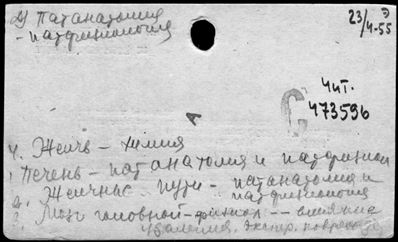 2) Патанатомия
- патфизиология
23/4-55
Чит.
473596
4. Желчь - химия
1. Печень - патанатомия и патфизиол
2. Желчные пути - патанатомия и
патфизиология
3. Мозг головной - физиол -- влияние
экспер. поврежд